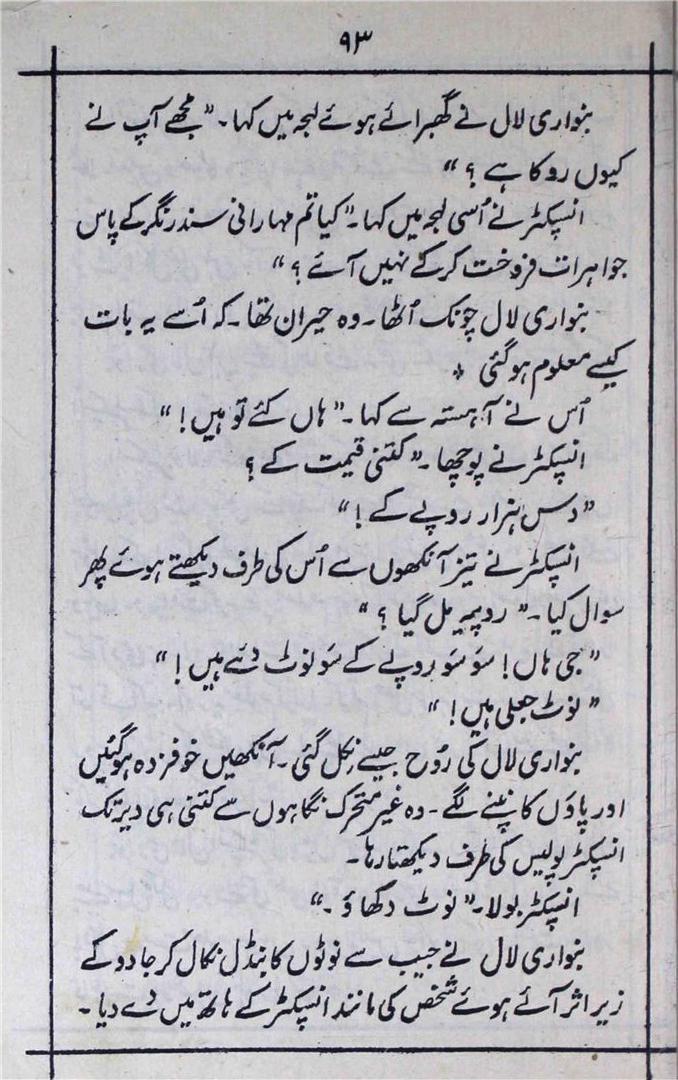 ۹۳
بنواری لال نے گھبرائے ہوئے لہجہ میں کہا۔ "مجھے آپ نے
کیوں روکا ہے ؟"
انسپکٹر نے اُسی لہجہ میں کہا۔ "کیا تم مہارانی سندر نگر کے پاس
جواہرات فروخت کر کے نہیں آئے ؟"
بنواری لال چونک اُٹھا۔ وہ حیران تھا۔ کہ اُسے یہ بات
کیسے معلوم ہو گئی ٭
اُس نے آہستہ سے کہا۔ "ہاں کئے تو ہیں !"
انسپکٹر نے پوچھا۔ "کتنی قیمت کے ؟
"دس ہزار روپے کے !"
انسپکٹر نے تیز آنکھوں سے اُس کی طرف دیکھتے ہوئے پھر
سوال کیا۔ "روپیہ مل گیا ؟"
"جی ہاں ! سَو سَو روپے کے سَو نوٹ دئے ہیں !"
"نوٹ جعلی ہیں !"
بنواری لال کی رُوح جیسے نِکل گئی۔ آنکھیں خوفزدہ ہو گئیں
اور پاؤں کانپنے لگے۔ وہ غیر متحرک نگاہوں سے کتنی ہی دیر تک
انسپکٹر پولیس کی طرف دیکھتا رہا۔
انسپکٹر بولا۔ "نوٹ دکھاؤ ۔"
بنواری لال نے جیب سے نوٹوں کا بنڈل نکال کر جادو کے
زیر اثر آئے ہوئے شخص کی مانند انسپکٹر کے ہاتھ میں دے دیا۔